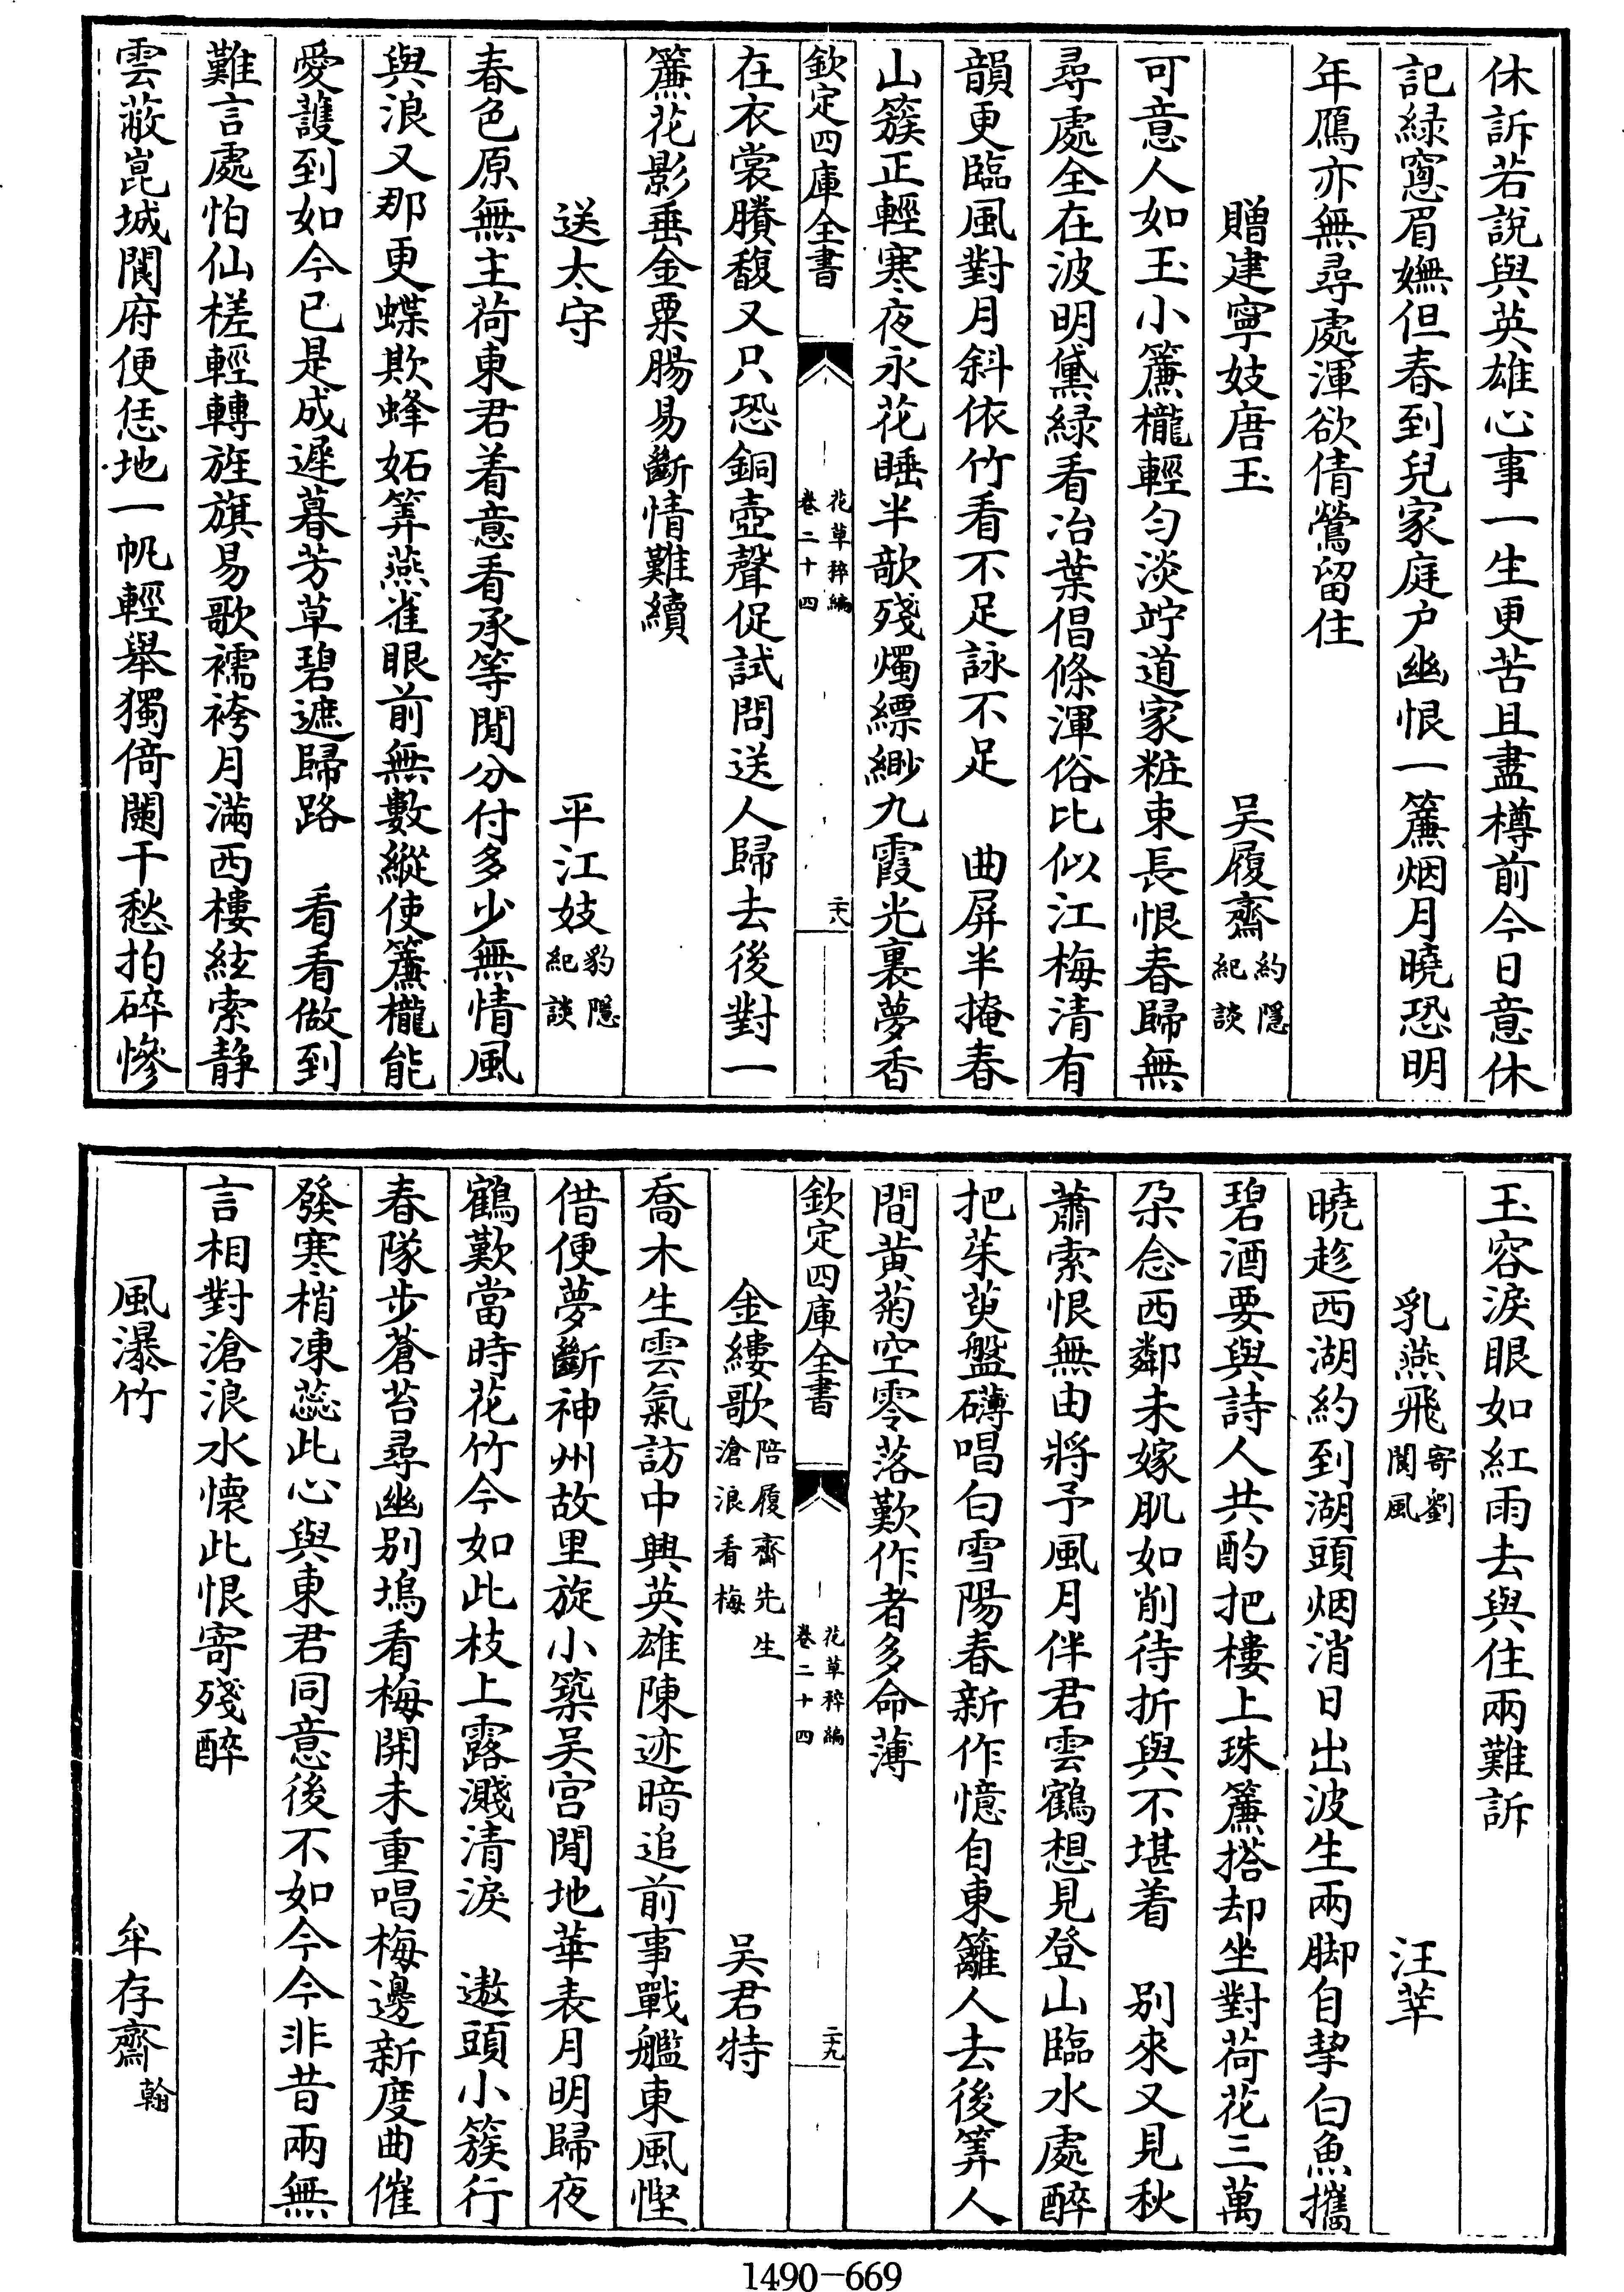 休訴若說與英雄心事一生更苦且盡樽前今日意休
記緑窓眉嫵但春到兒家庭户幽恨一簾烟月曉恐明
年鴈亦無尋處渾欲倩鶯留住
贈建寧妓唐玉 吴履齋 約隱紀談
可意人如玉小簾櫳輕勻淡竚道家粧束長恨春歸無
尋處全在波明黛緑看冶葉倡條渾俗比似江梅清有
韻更臨風對月斜依竹看不足詠不足 曲屏半掩春
山簇正輕寒夜永花睡半欹殘燭縹緲九霞光裏夢香
欽定四庫全書 花草稡編 卷二十四 二十八
在衣裳賸馥又只恐銅壺聲促試問送人歸去後對一
簾花影垂金粟腸易斷情難續
送太守 平江妓 豹隱紀談
春色原無主荷東君着意看承等閒分付多少無情風
與浪又那更蝶欺蜂妬筭燕雀眼前無數縱使簾櫳能
愛護到如今已是成遲暮芳草碧遮歸路 看看做到
難言處怕仙槎輕轉旌旗易歌襦袴月滿西樓絃索静
雲蔽崑城閬府便恁地一帆輕舉獨倚闌干愁拍碎慘
玉容淚眼如紅雨去與住兩難訴
乳燕飛 寄劉閬風 汪莘
曉趁西湖約到湖頭烟消日出波生兩脚自挈白魚攜
碧酒要與詩人共酌把樓上珠簾搭却坐對荷花三萬
朶念西鄰未嫁肌如削待折與不堪着 别來又見秋
蕭索恨無由將予風月伴君雲鶴想見登山臨水處醉
把茱萸盤礴唱白雪陽春新作憶自東籬人去後筭人
間黄菊空零落歎作者多命薄
欽定四庫全書 花草稡編 卷二十四 二十九
金縷歌 陪履齋先生滄浪看梅 吴君特
喬木生雲氣訪中興英雄陳迹暗追前事戰艦東風慳
借便夢斷神州故里旋小築吴宫閒地華表月明歸夜
鶴歎當時花竹今如此枝上露濺清淚 遨頭小簇行
春隊步蒼苔尋幽别塢看梅開未重唱梅邊新度曲催
發寒梢凍蕊此心與東君同意後不如今今非昔兩無
言相對滄浪水懷此恨寄殘醉
風瀑竹 牟存齋 翰
1490-669